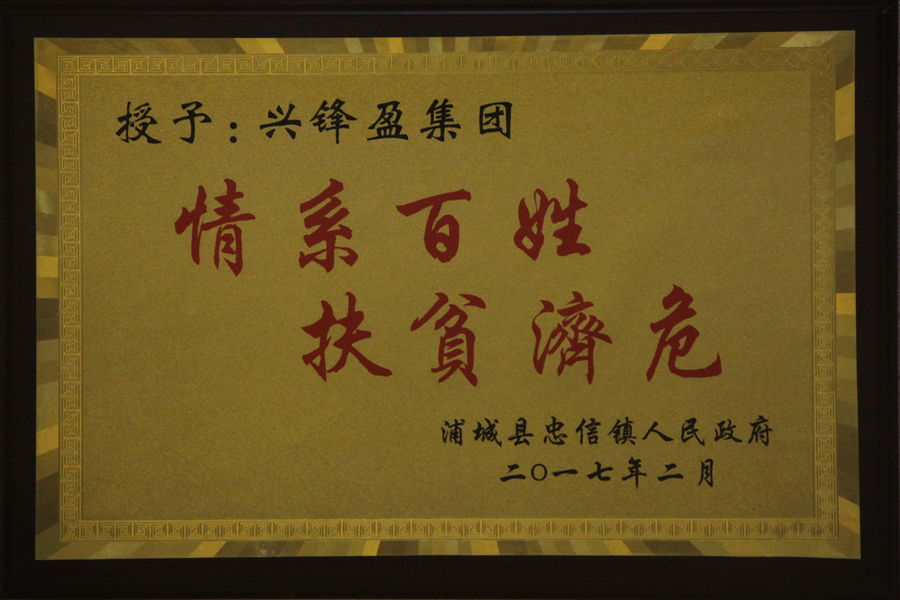 授予:兴锋盈集团
情系百姓
扶貧濟危
浦城县忠信镇人民政府
二〇一七年二月